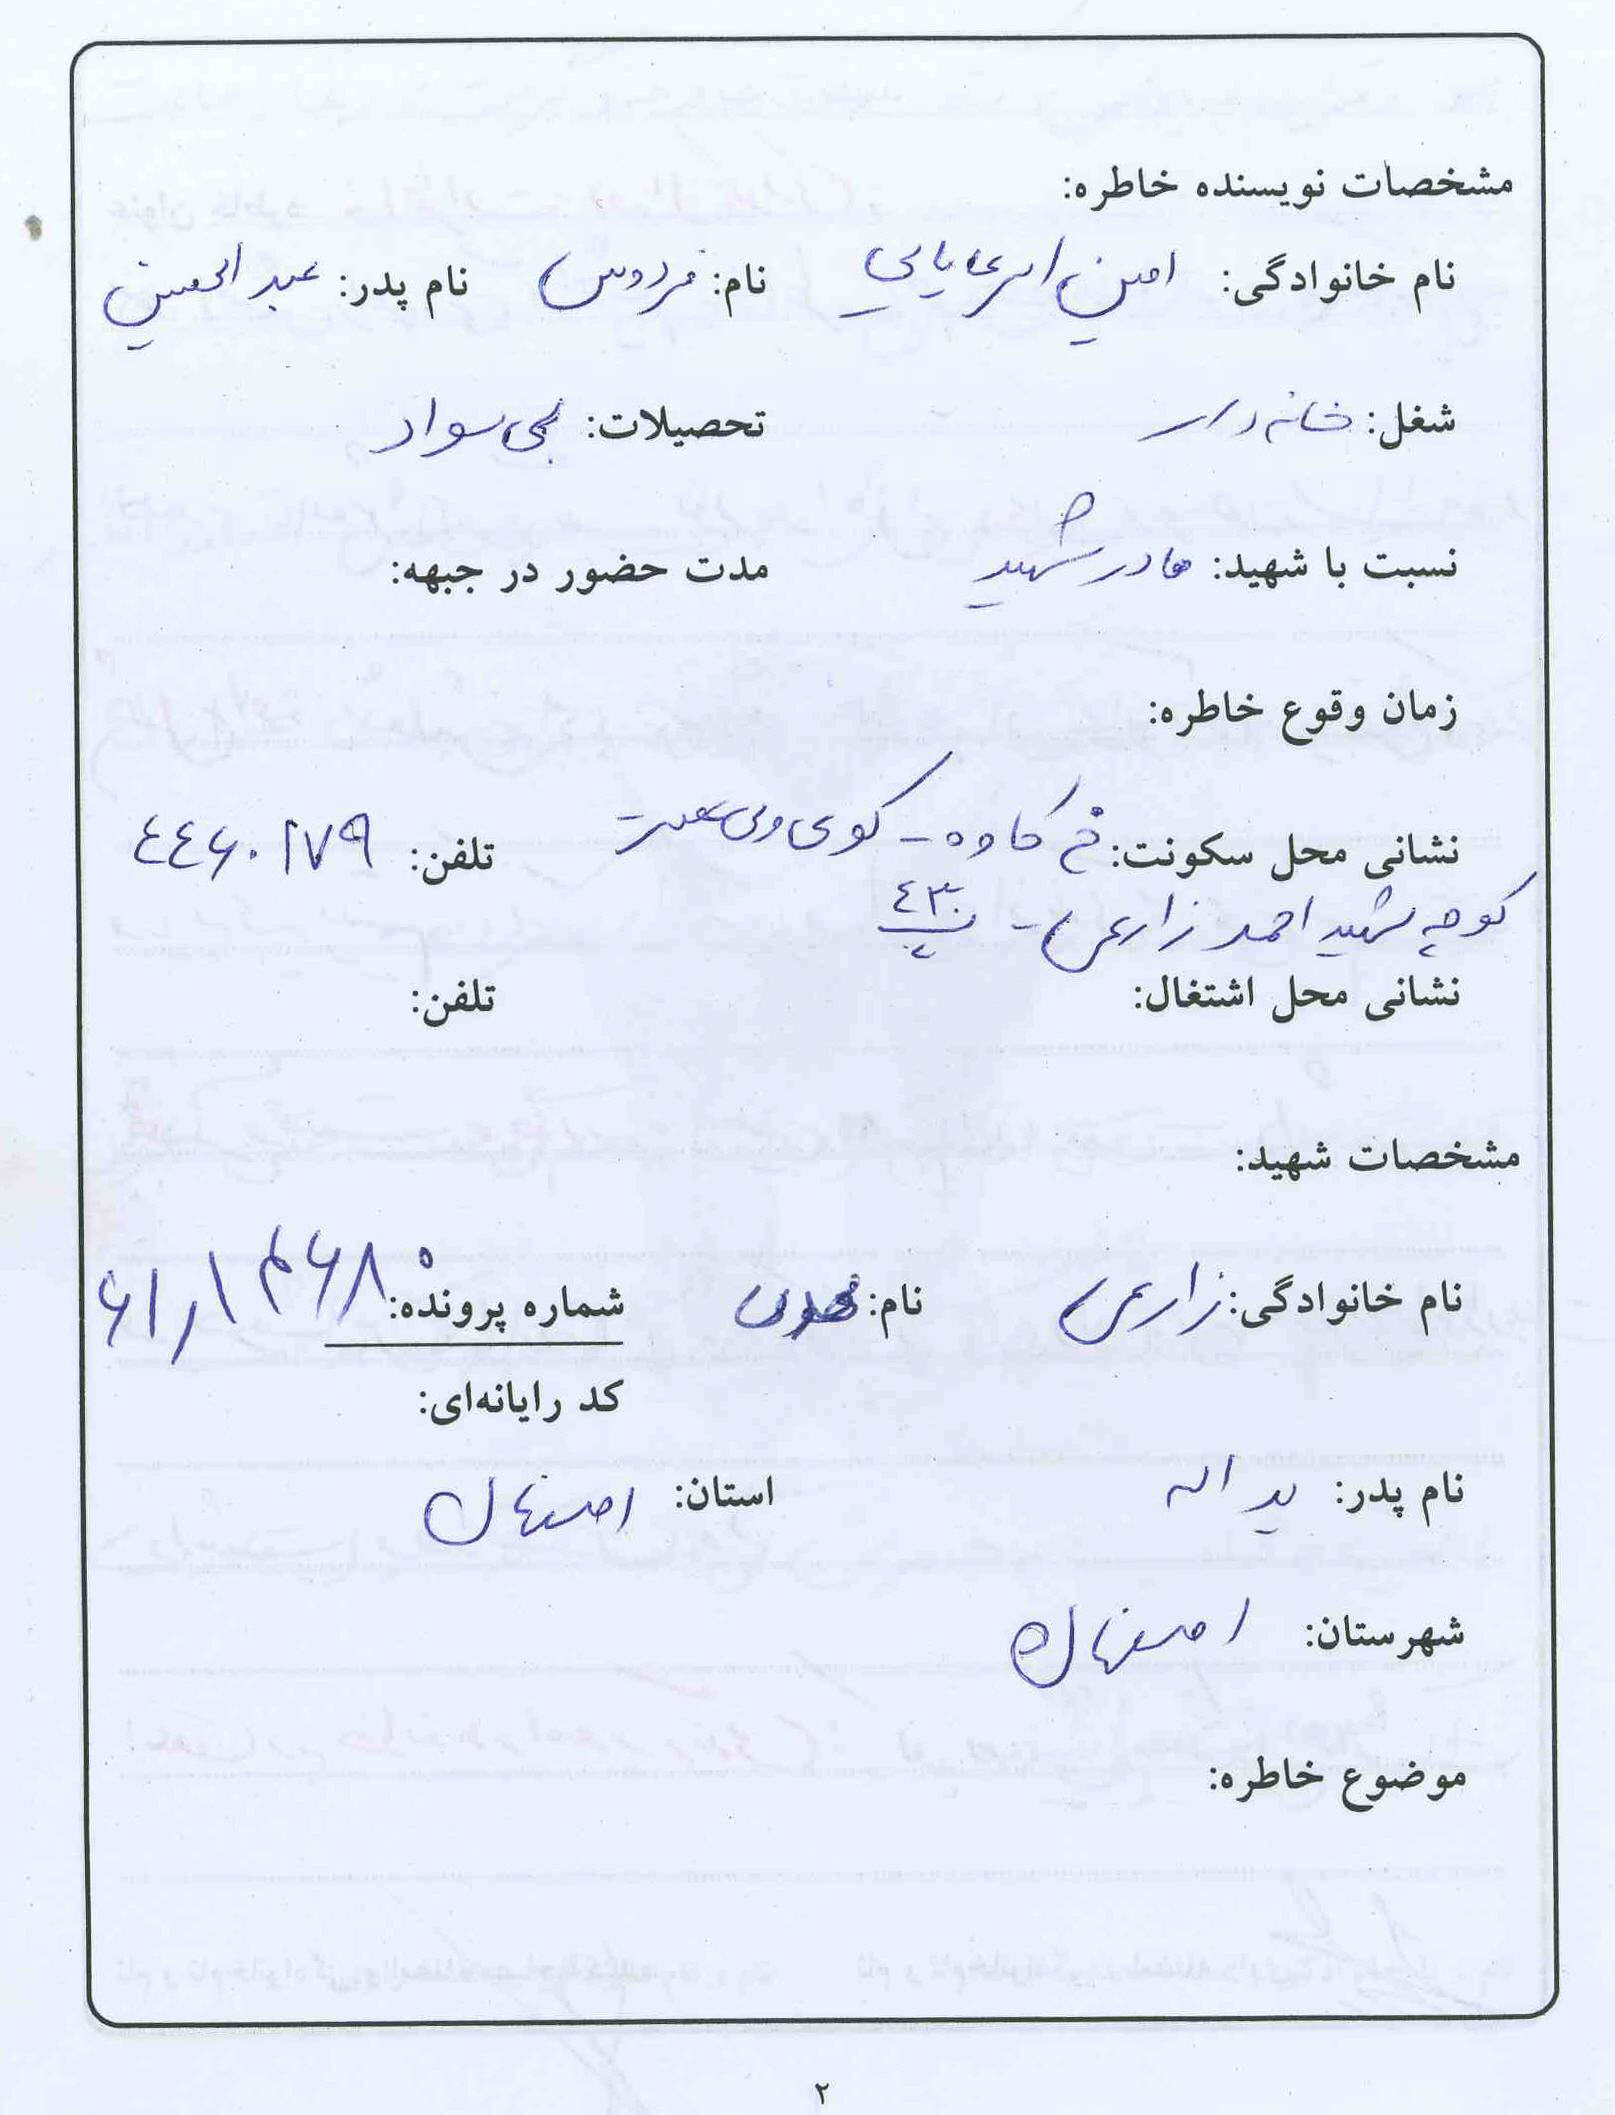 مشخصات نویسنده خاطره:
نام خانوادگی: امینی اسرعیایی نام: فردوس نام پدر: عبدالحسین
شغل: خانه دار تحصیلات: بی سواد
نسبت با شهید: مادر شهید مدت حضور در جبهه:
زمان وقوع خاطره:
نشانی محل سکونت: خ کاوه - کوی ولی عصر تلفن: ۴۴۶۰۲۷۹
کوچه شهید احمد زارعی - پ ۴۳۰
نشانی محل اشتغال: تلفن:
مشخصات شهید:
نام خانوادگی: زارعی نام: شماره پرونده:
کد رایانه‌ای:
نام پدر: یداله استان: اصفهان
شهرستان: اصفهان
موضوع خاطره:
۲